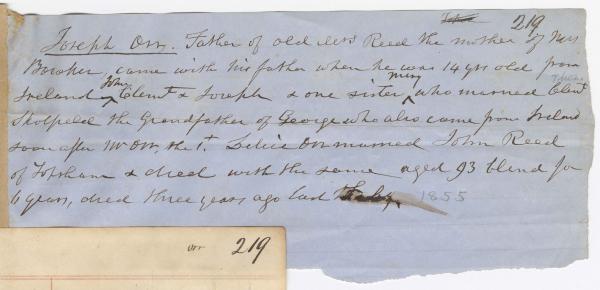 219
Joseph Orr. Father of old Mrs Reed the mother of Mrs
Bowker came with his father when he was 14 yrs old from
Ireland John Clemt & Joseph & one sister Mary who married Clemt
the Grandfather of George who also came from Ireland
soon after Mr Orr, the 1st. Orr married John Reed
of Topsham & died with the same aged 93 blind for
6 years, died three years ago last 1855
orr 219